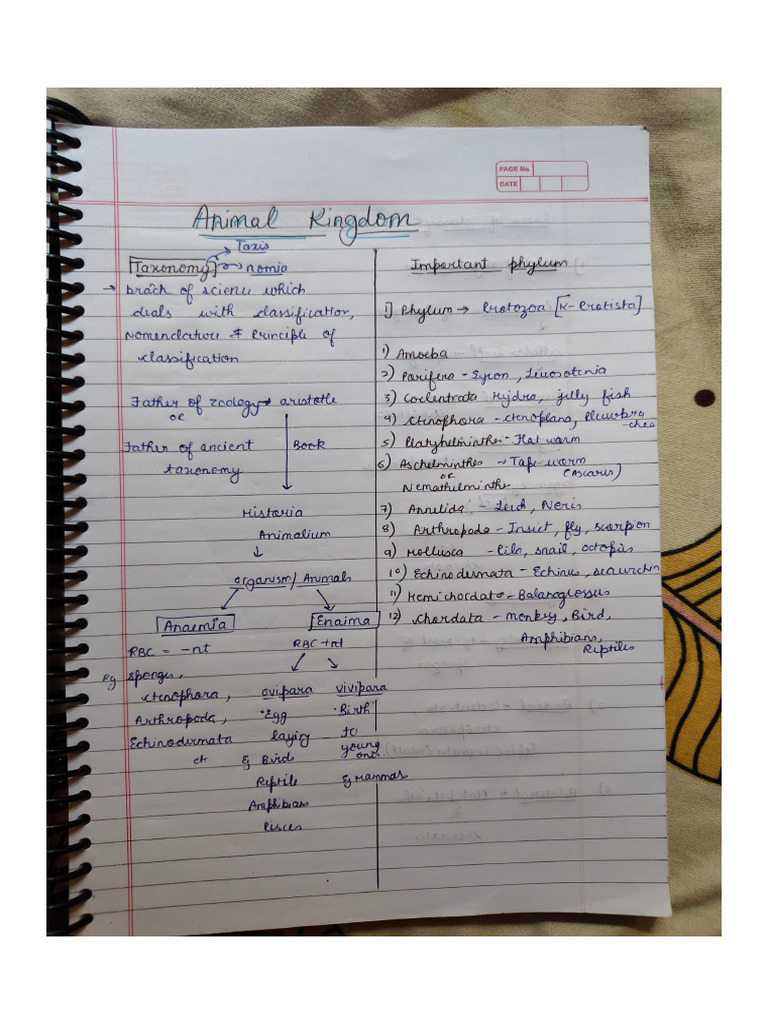 PAGE No.
DATE
Animal Kingdom
Taxis
Taxonomy nomia
→ brach of science which
deals with classification,
Nomenclature & Principle of
classification
Father of zoology → aristotle
or
Father of ancient Book
taxonomy
Historia
Animalium
↓
organism/Animals
Anaemia Enaima
RBC = -nt RBC +nt
Eg sponges,
ctenophora, ovipara vivipara
Arthropoda, ·Egg ·Birth
Echinodermata laying to
etc young
Eg Birds ones
Reptile Eg Mammas
Amphibians
Pisces
Important phylum
1] Phylum → Protozoa [K- Protista]
1) Amoeba
2) Porifera - Sycon, Leucosolenia
3) Coelentrata Hydra, jelly fish
4) ctenophora - ctenoplana, Pleurobra
-chea
5) Platyhelminthes - Flat warm
6) Aschelminthes → Tape worm
or (Ascaris)
Nemathelminthe
7) Annelida - Leech, Neris
8) Arthropoda - Insect, fly, scorpion
9) Mollusca - Pila, snail, octopus
10) Echinodermata - Echinus, seaurchin
11) Hemichordata - Balanoglossus
12) Chordata - monkey, Bird,
Amphibians,
Reptiles